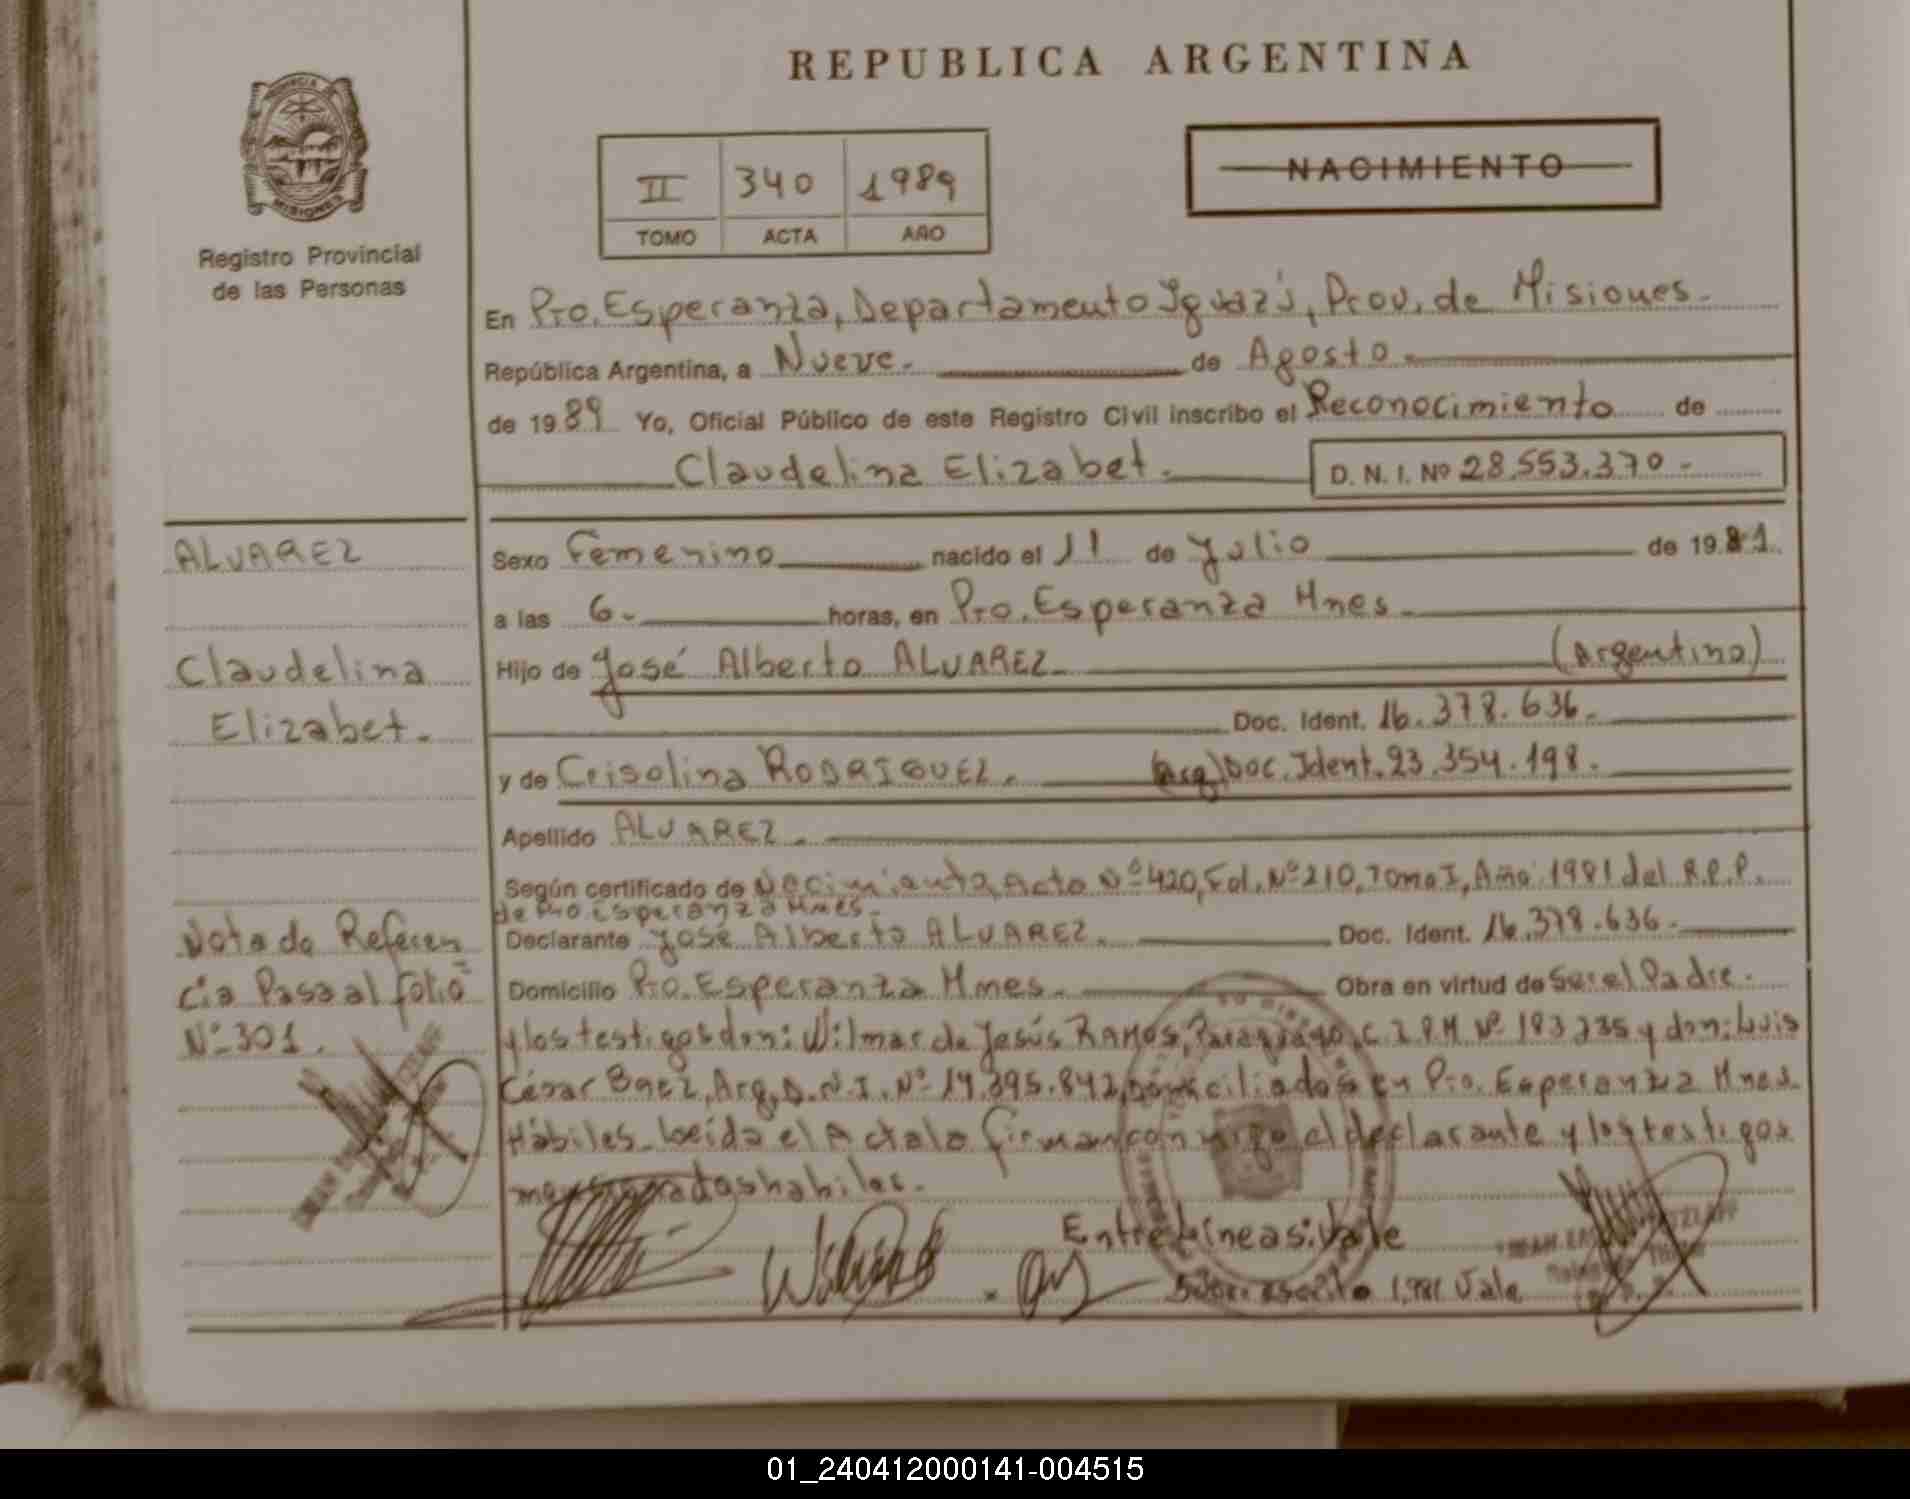 REPUBLICA ARGENTINA
PROVINCIA DE
MISIONES
Registro Provincial
de las Personas
II 340 1989
TOMO ACTA AÑO
NACIMIENTO
En Pto. Esperanza, Departamento Iguazú, Prov. de Misiones.
República Argentina, a Nueve. de Agosto.
de 1989 Yo, Oficial Público de este Registro Civil inscribo el Reconocimiento de
Claudelina Elizabet. D. N. I. Nº 28.553.370.-
ALVAREZ
Claudelina
Elizabet.
Sexo Femenino nacido el 11 de Julio de 1981.
a las 6. horas, en Pto. Esperanza Mnes.
Hijo de José Alberto ALVAREZ. (Argentino)
Doc. Ident. 16.378.636.
y de Crisolina RODRIGUEZ. (Arg) Doc. Ident. 23.354.198.
Apellido ALVAREZ.
Según certificado de Nacimiento, Acta Nº 420, Fol. Nº 210, Tomo I, Año 1981 del R.P.P.
de Pto. Esperanza Mnes.
Declarante José Alberto ALVAREZ. Doc. Ident. 16.378.636.
Domicilio Pto. Esperanza Mnes. Obra en virtud de Ser el Padre.
y los testigos don: Wilmar de Jesús RAMOS, Paraguayo, C.I.P.M. Nº 183235 y don: Luis
César Baez, Arg, D.N.I. Nº 14.395.842, Domiciliados en Pto. Esperanza Mnes.
Hábiles. Leída el Acta la firman conmigo el declarante y los testigos
habiles.
Entre Líneas: Vale
Sobre escrito 1.981 Vale
Nota de Referen
cia Pasa al folio
Nº 301.
01_240412000141-004515